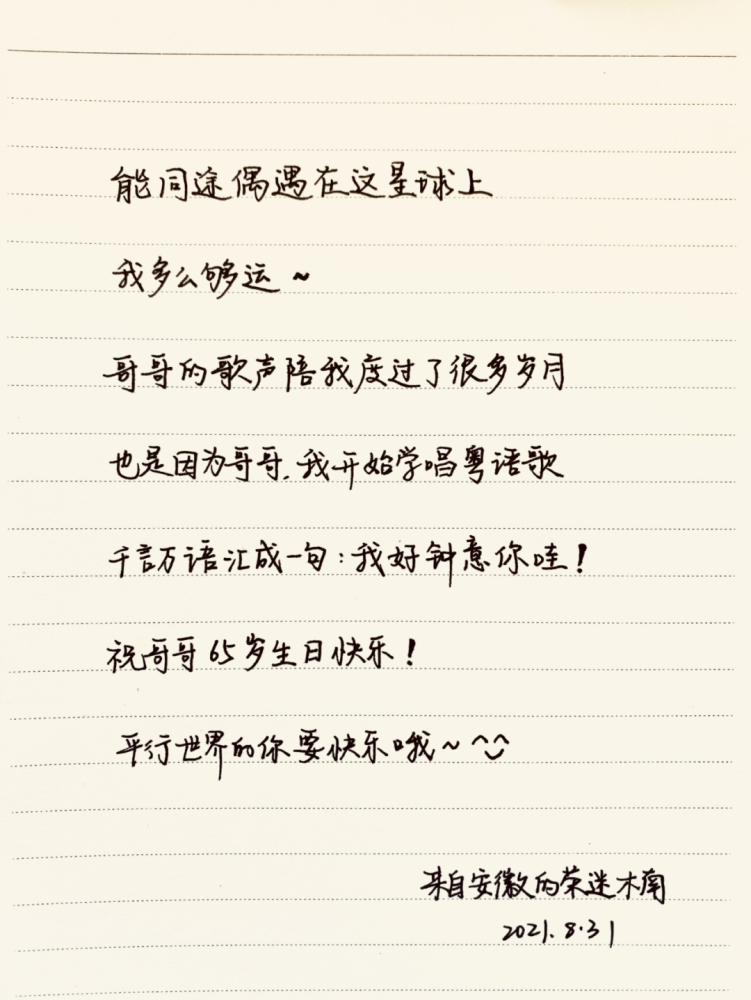 能同途偶遇在这星球上
我多么够运~
哥哥的歌声陪我度过了很多岁月
也是因为哥哥,我开始学唱粤语歌
千言万语汇成一句:我好钟意你哇!
祝哥哥65岁生日快乐!
平行世界的你要快乐哦~^^
来自安徽的荣迷木南
2021.8.31